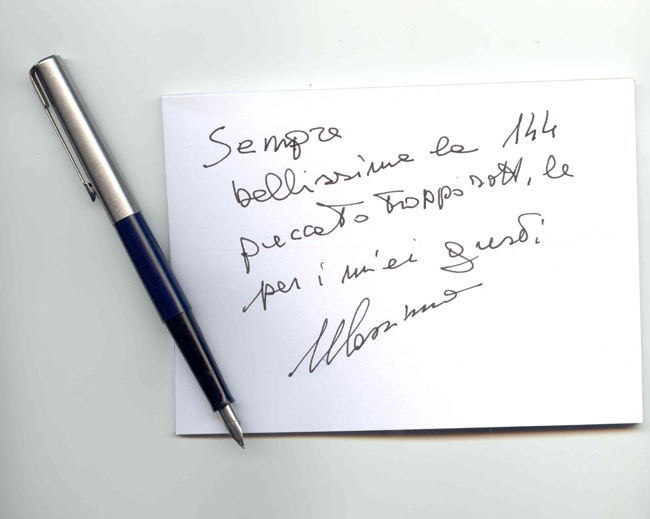 Sempre
bellissime le 144
peccato troppo sott, le
per i miei gusti
Massimo